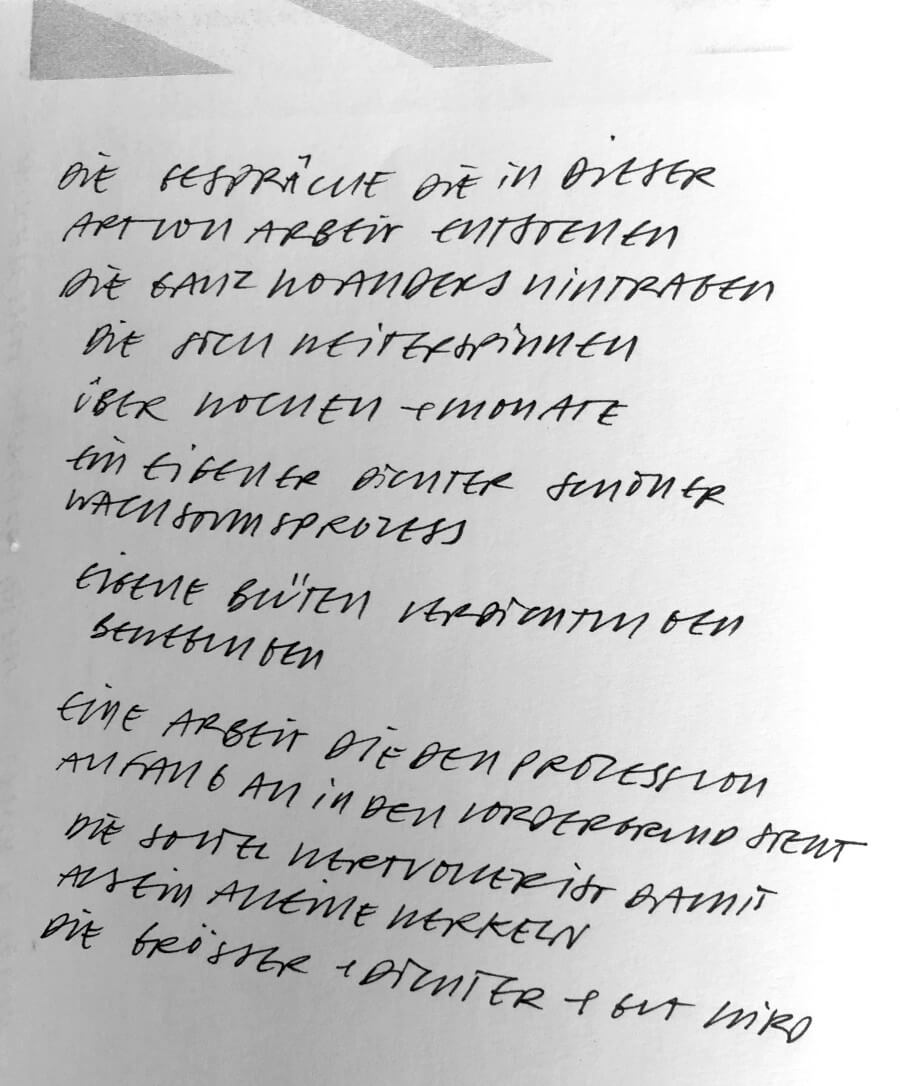 DIE GESPRÄCHE DIE IN DIESER
ART VON ARBEIT ENTSTEHEN
DIE GANZ WOANDERS HINTRAGEN
DIE SICH WEITERSPINNEN
ÜBER WOCHEN + MONATE
EIN EIGENER DICHTER SCHÖNER
WACHSTUMSPROZESS
EIGENE BLÜTEN VERDICHTUNGEN
BEWEGUNGEN
EINE ARBEIT DIE DEN PROZESS VON
ANFANG AN IN DEN VORDERGRUND STELLT
DIE SOVIEL WERTVOLLER IST DAMIT
ALS EIN ALLEINE WERKELN
DIE GRÖSSER + DICHTER + GUT WIRD